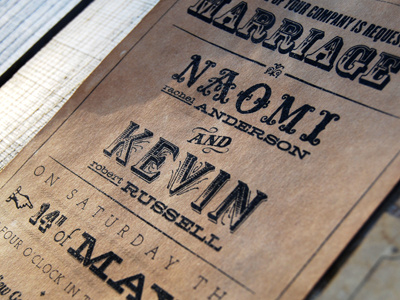 OF YOUR COMPANY IS REQUES
MARRIAGE
NAOMI
rachel ANDERSON
AND
KEVIN
robert RUSSELL
ON SATURDAY TH
14TH of MAY
FOUR O'CLOCK IN T